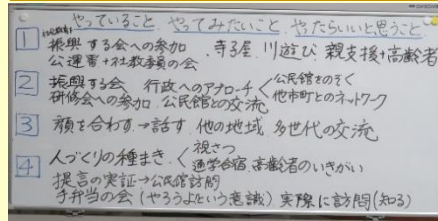 やっていること やってみたいこと やったらいいと思うこと
1 振興する会への参加 寺子屋 川遊び 親支援+高齢者
公運審+社教委員の会
2 振興する会 行政へのアプローチ 公民館をのぞく
研修会への参加 公民館との交流 他市町とのネットワーク
3 顔を合わす→話す 他の地域、多世代の交流
4 人づくりの種まき 視さつ
通学合宿、高齢者のいきがい
提言の実証→公民館訪問
手弁当の会(やろうよという意識) 実際に訪問(知る)